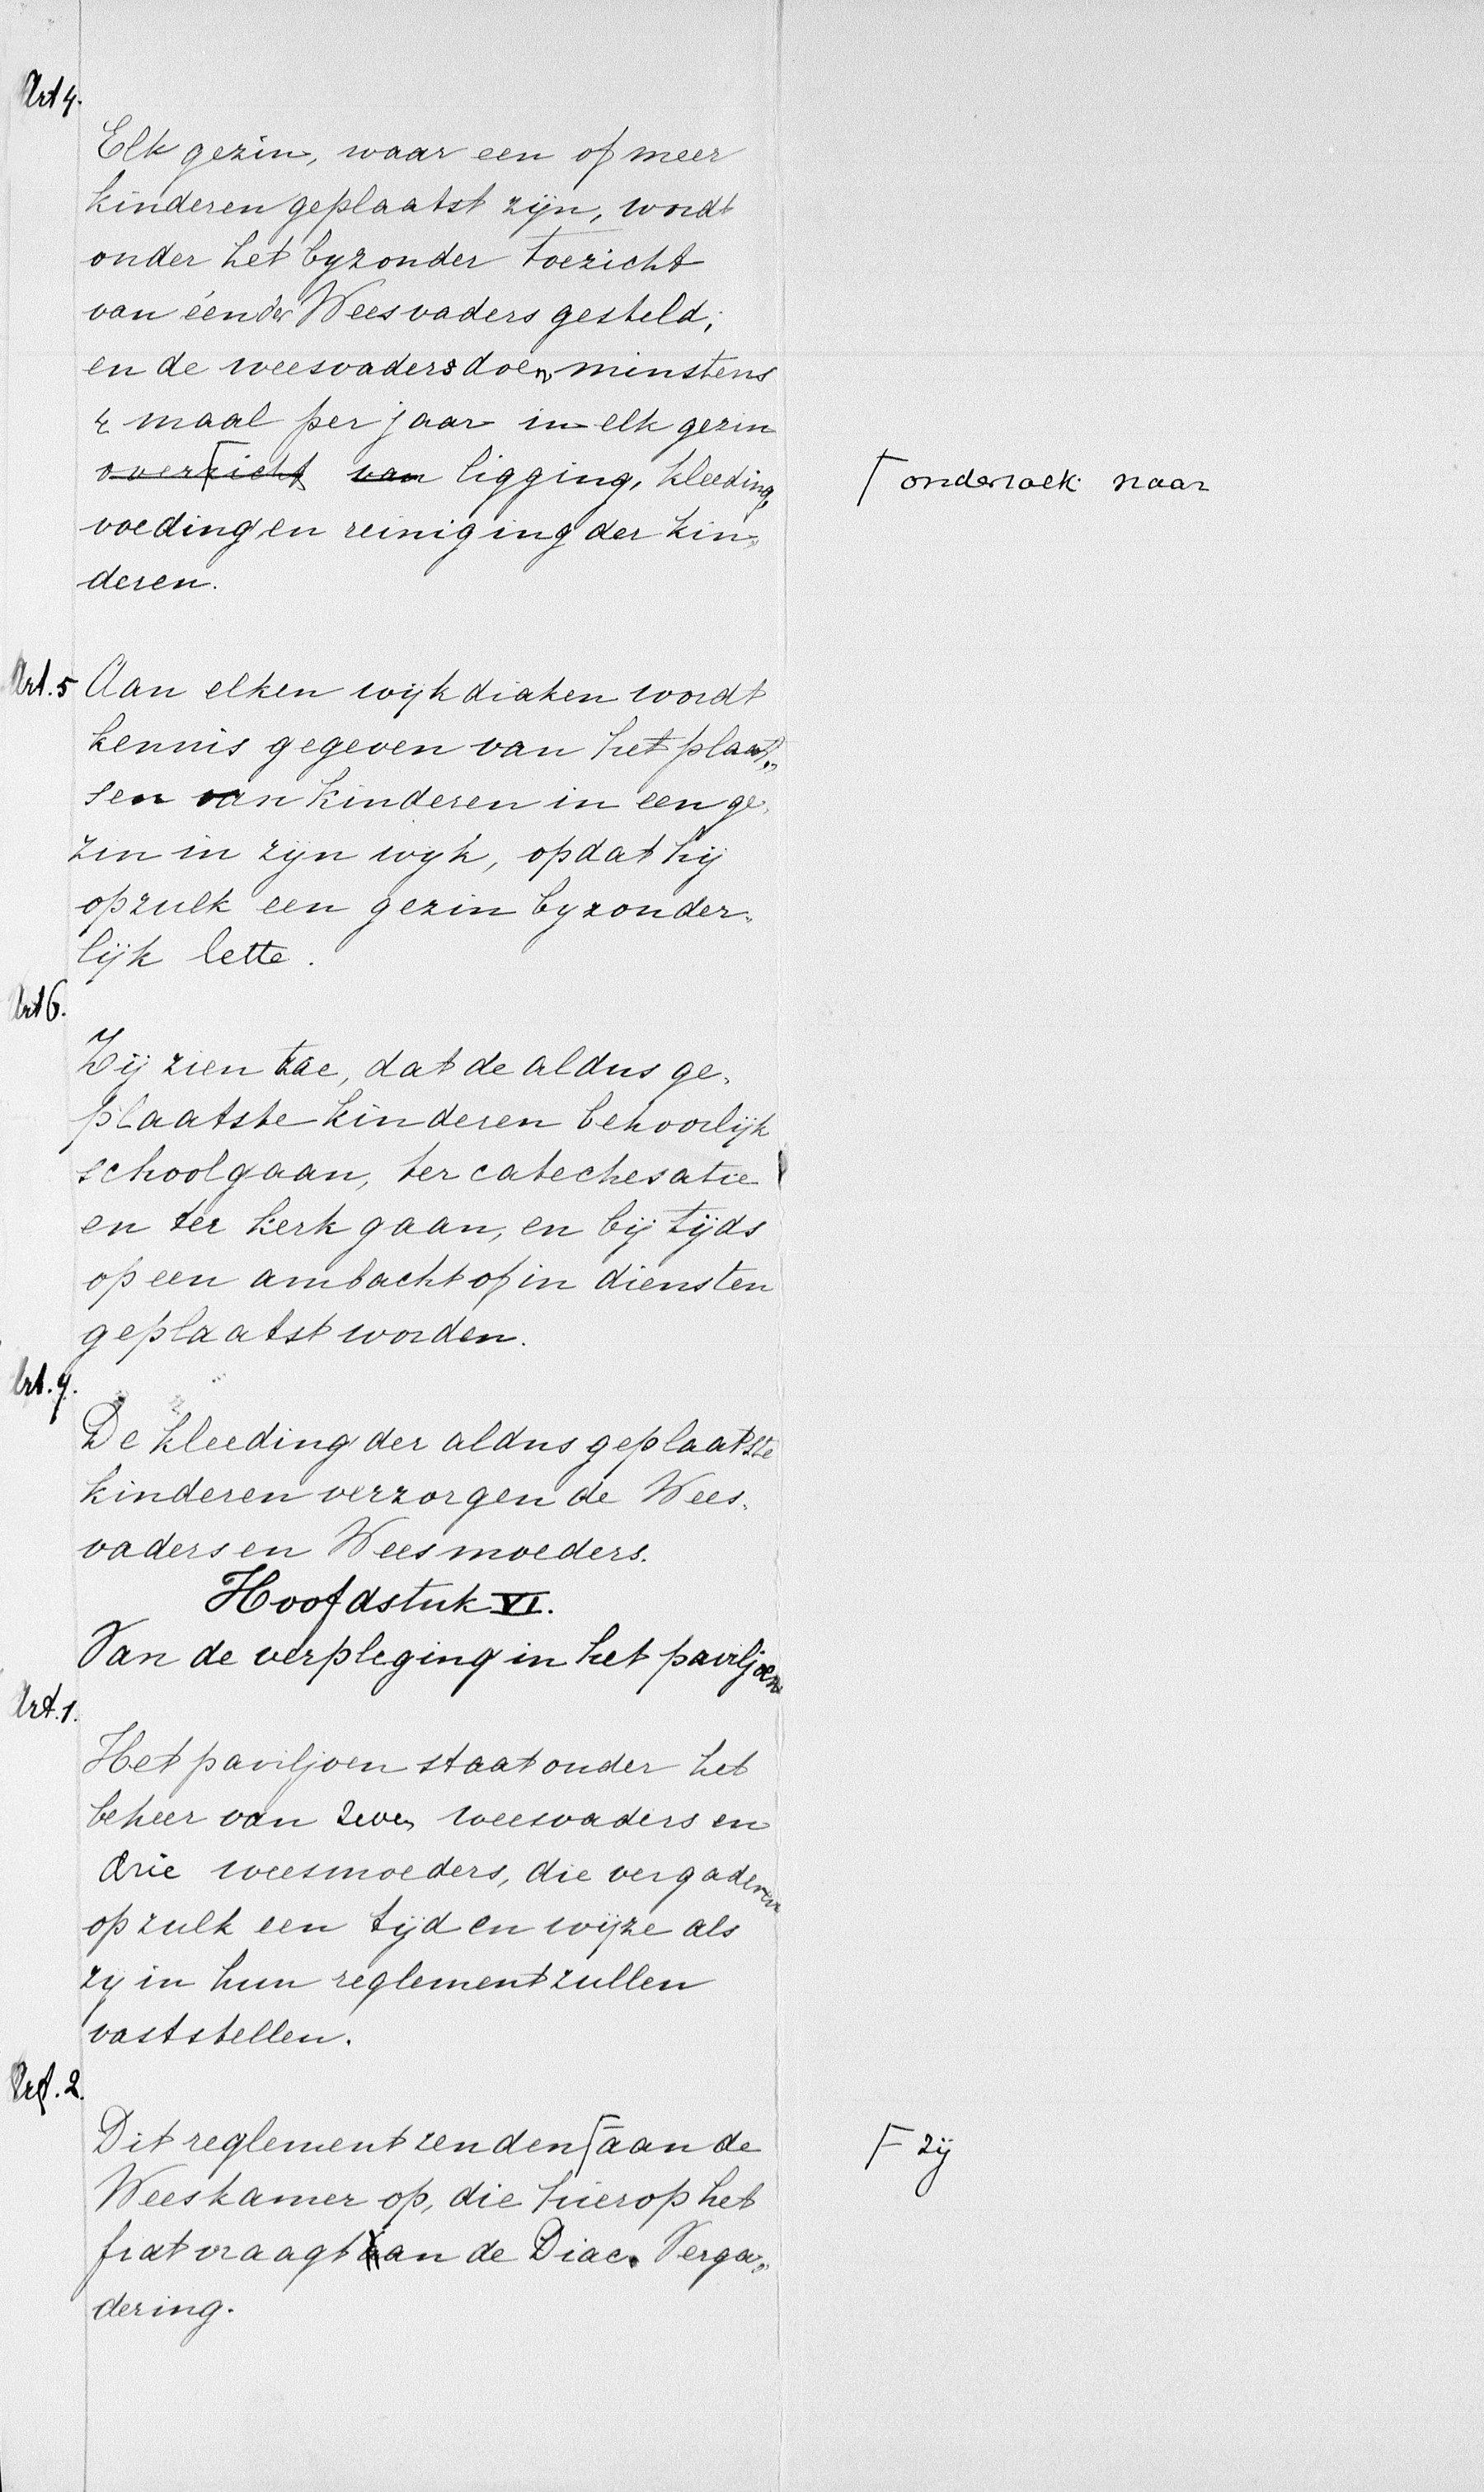 Art 4.
Elk gezin, waar een of meer
kinderen geplaatst zijn, wordt
onder het byzonder toezicht
van één der Weesvaders gesteld;
en de weesvaders doen minstens
4 maal per jaar in elk gezin
overzicht van ligging, kleeding,
onderzoek naar
voeding en reiniging der kin„
deren.
Art. 5 Aan elken wijkdiaken wordt
kennis gegeven van het plaat„
sen van kinderen in een ge„
zin in zijn wijk, opdat hij
op zulk een gezin byzonder„
lijk lette.
Art 6.
Zij zien toe, dat de aldus ge„
plaatste kinderen behoorlijk
schoolgaan, ter catechesatie
en ter kerk gaan, en bij tijds
op een ambacht of in diensten
geplaatst worden.
Art. 7.
De kleeding der aldus geplaatste
kinderen verzorgen de Wees„
vaders en Weesmoeders.
Hoofdstuk VI.
Van de verpleging in het paviljoen
Art. 1.
Het paviljoen staat onder het
beheer van zeven weesvaders en
drie weesmoeders, die vergaderen
op zulk een tijd en wijze als
zy in hun reglement zullen
vaststellen.
Art. 2.
Dit reglement zenden aan de
zij
Weeskamer op, die hierop het
fiat vraagt aan de Diac. Verga„
dering.